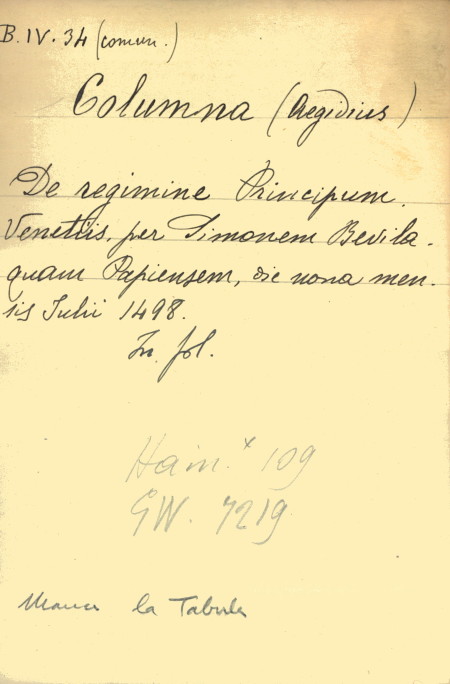 B. IV. 34 (comun.)
Columna (Aegidius)
De regimine Principum.
Venetiis, per Simonem Bevila-
quam Papiensem, die nona men-
sis Iulii 1498.
In fol.
Hain.ˣ 109
GW. 7219
Manca la Tabula